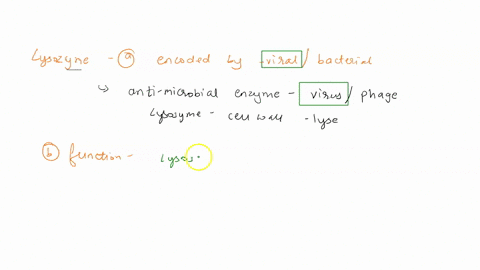 Lysozyme - a encoded by viral / bacterial
↳ anti-microbial enzyme - virus / phage
Lysozyme - cell wall - lyse
b function - Lysos